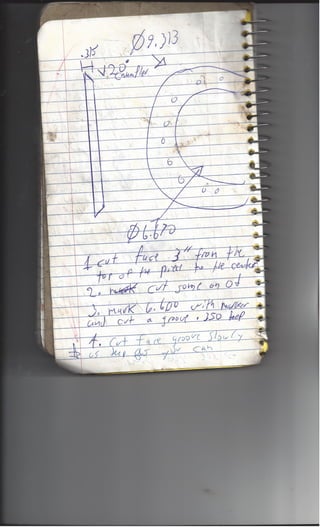 Ø9.313
.315
√20°
Chamfer
Ø6.670
1. cut face 3" from the
top of the part to the center
2. mark cut some on Od
3. mark 6.670 with marker
and cut a groove .350 deep
4. Cut face groove Slowly
as you can